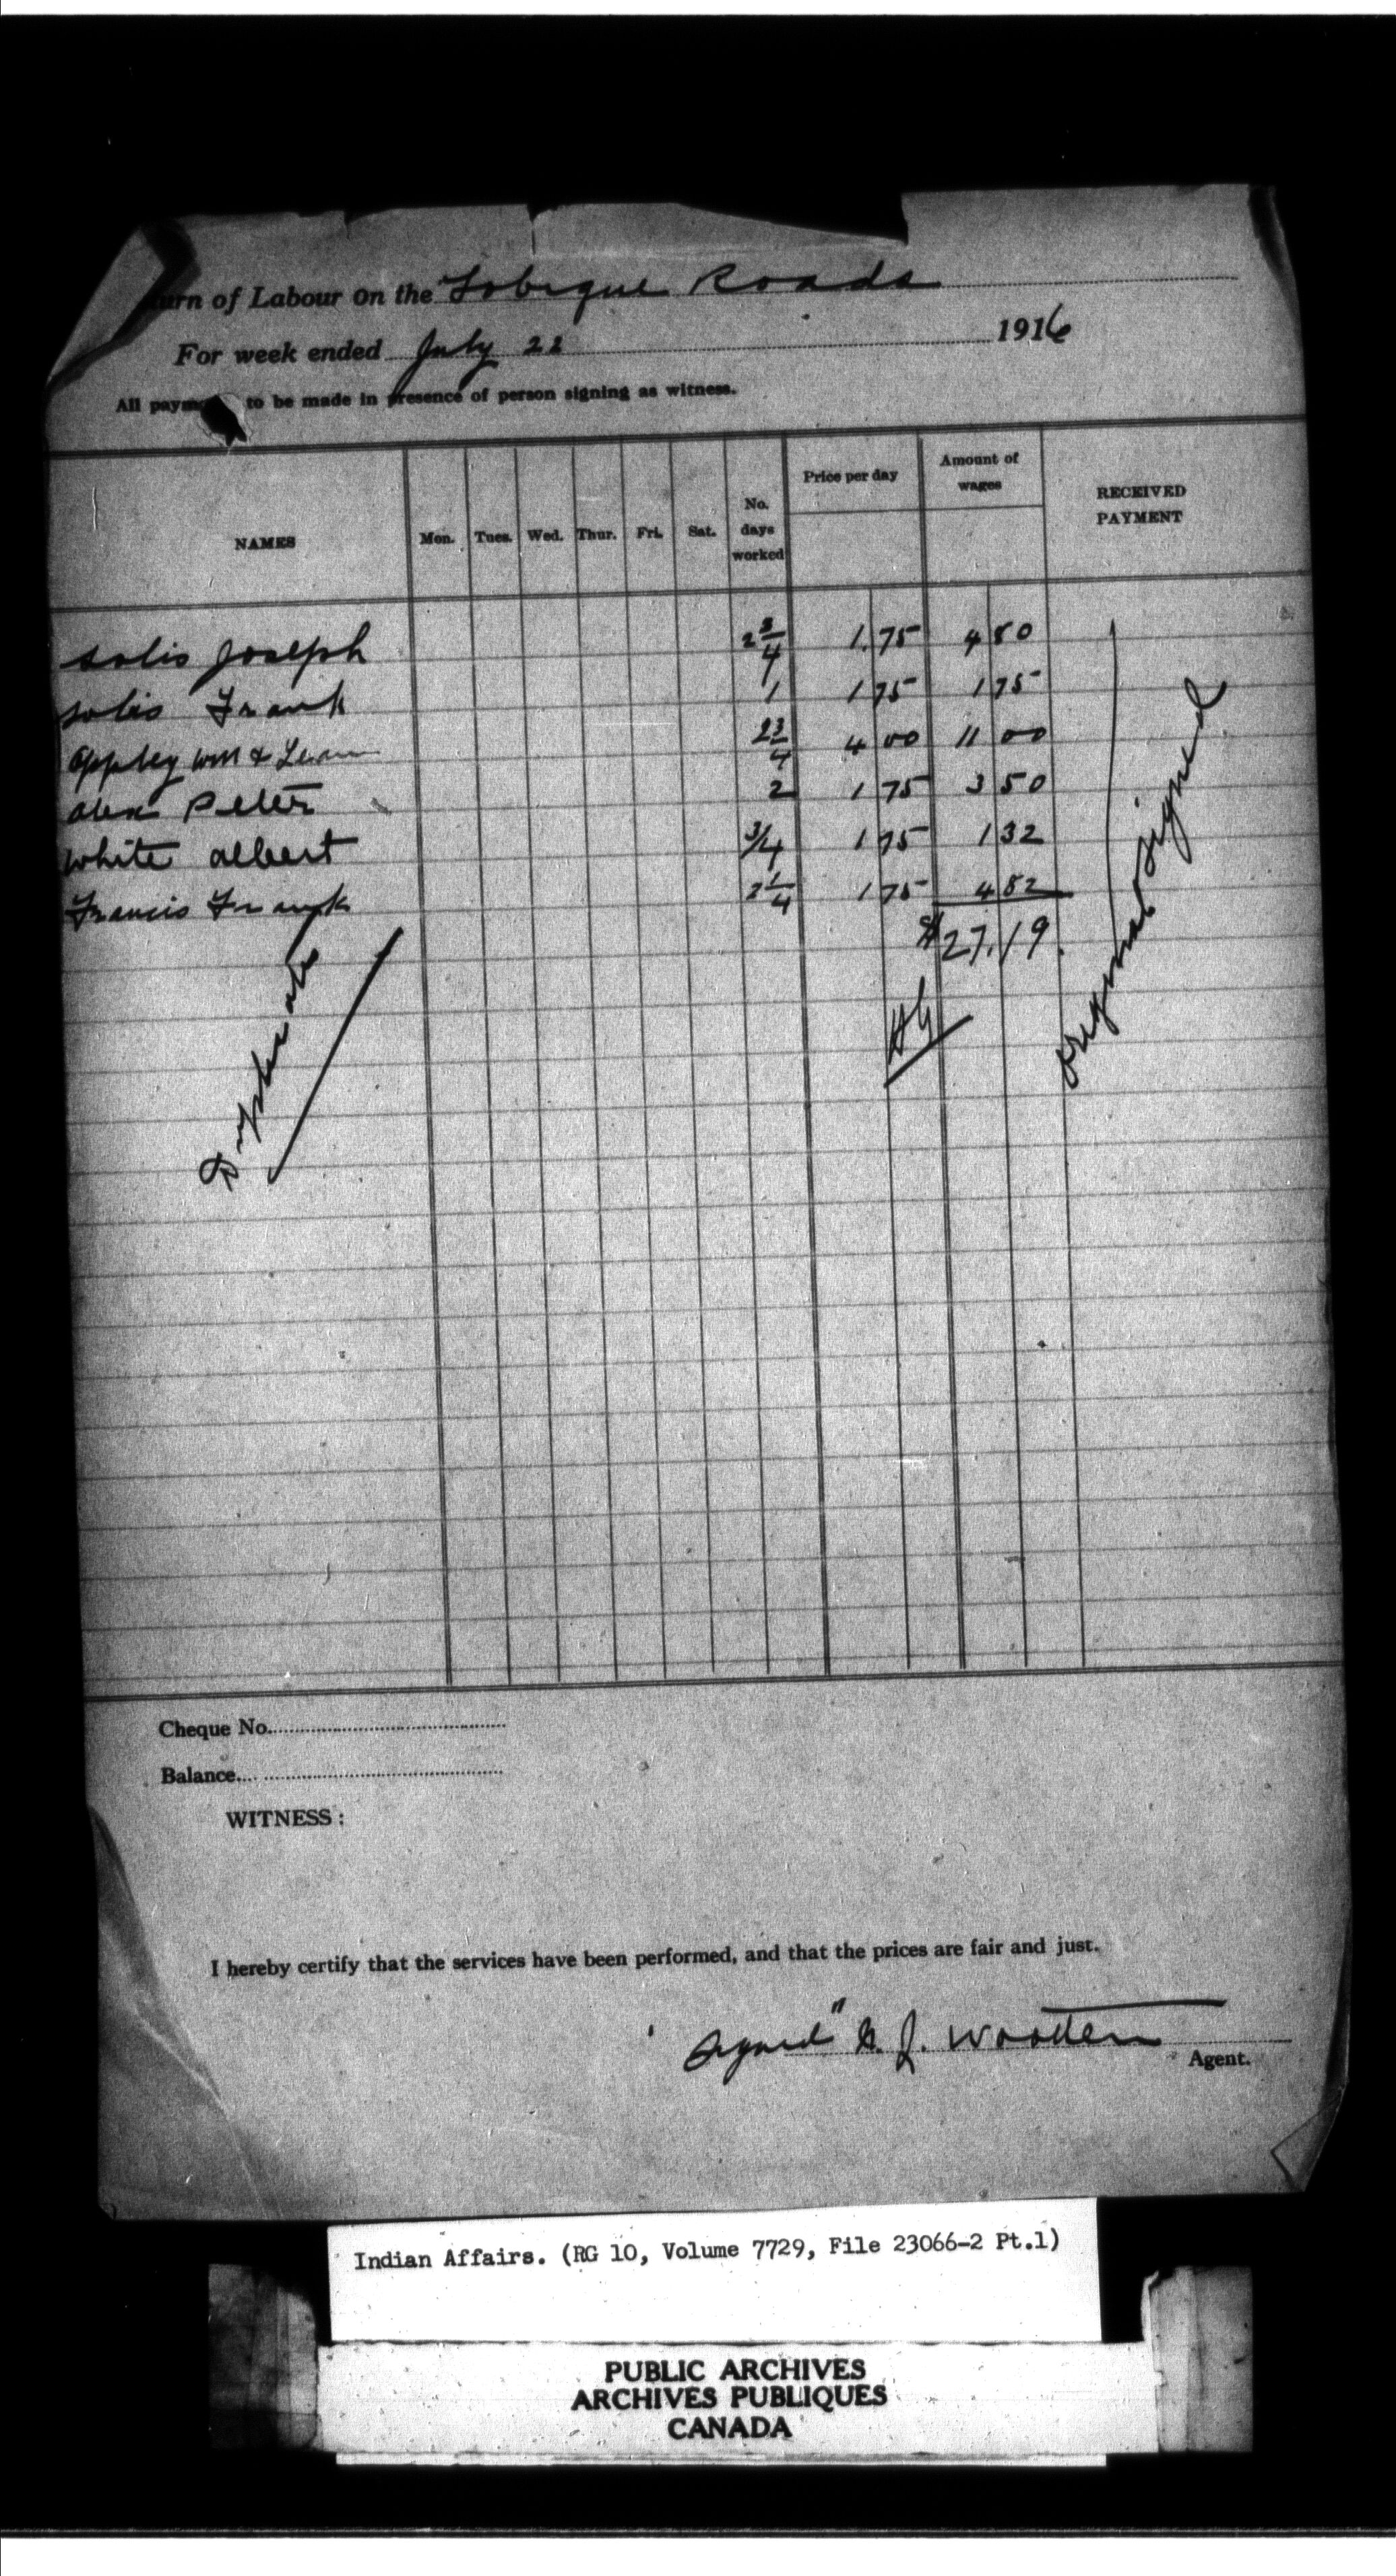 urn of Labour on the Tobique Roads
For week ended July 22 1916
All paym to be made in presence of person signing as witness.
NAMES Mon. Tues. Wed. Thur. Fri. Sat. No. days worked Price per day Amount of wages RECEIVED PAYMENT
Solis Joseph 2 3/4 1.75 4 80
Solis Frank 1 1 75 1 75
Appley Wm & 2 3/4 4 00 11 00
Alex Peter 2 1 75 3 50
White Albert 3/4 1 75 1 32
Francis Frank 2 1/4 1 75 4 82
$27.19
Duplicate
original signed
Cheque No.
Balance
WITNESS:
I hereby certify that the services have been performed, and that the prices are fair and just.
"Signed" G. J. Wootten
Agent.
Indian Affairs. (RG 10, Volume 7729, File 23066-2 Pt.1)
PUBLIC ARCHIVES
ARCHIVES PUBLIQUES
CANADA